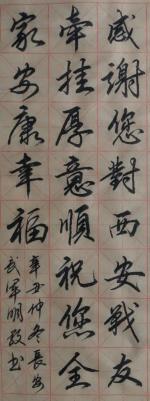 感謝您對西安戰友
牵挂厚意順祝您全
家安康幸福
辛丑仲冬長安
武軍明敬书